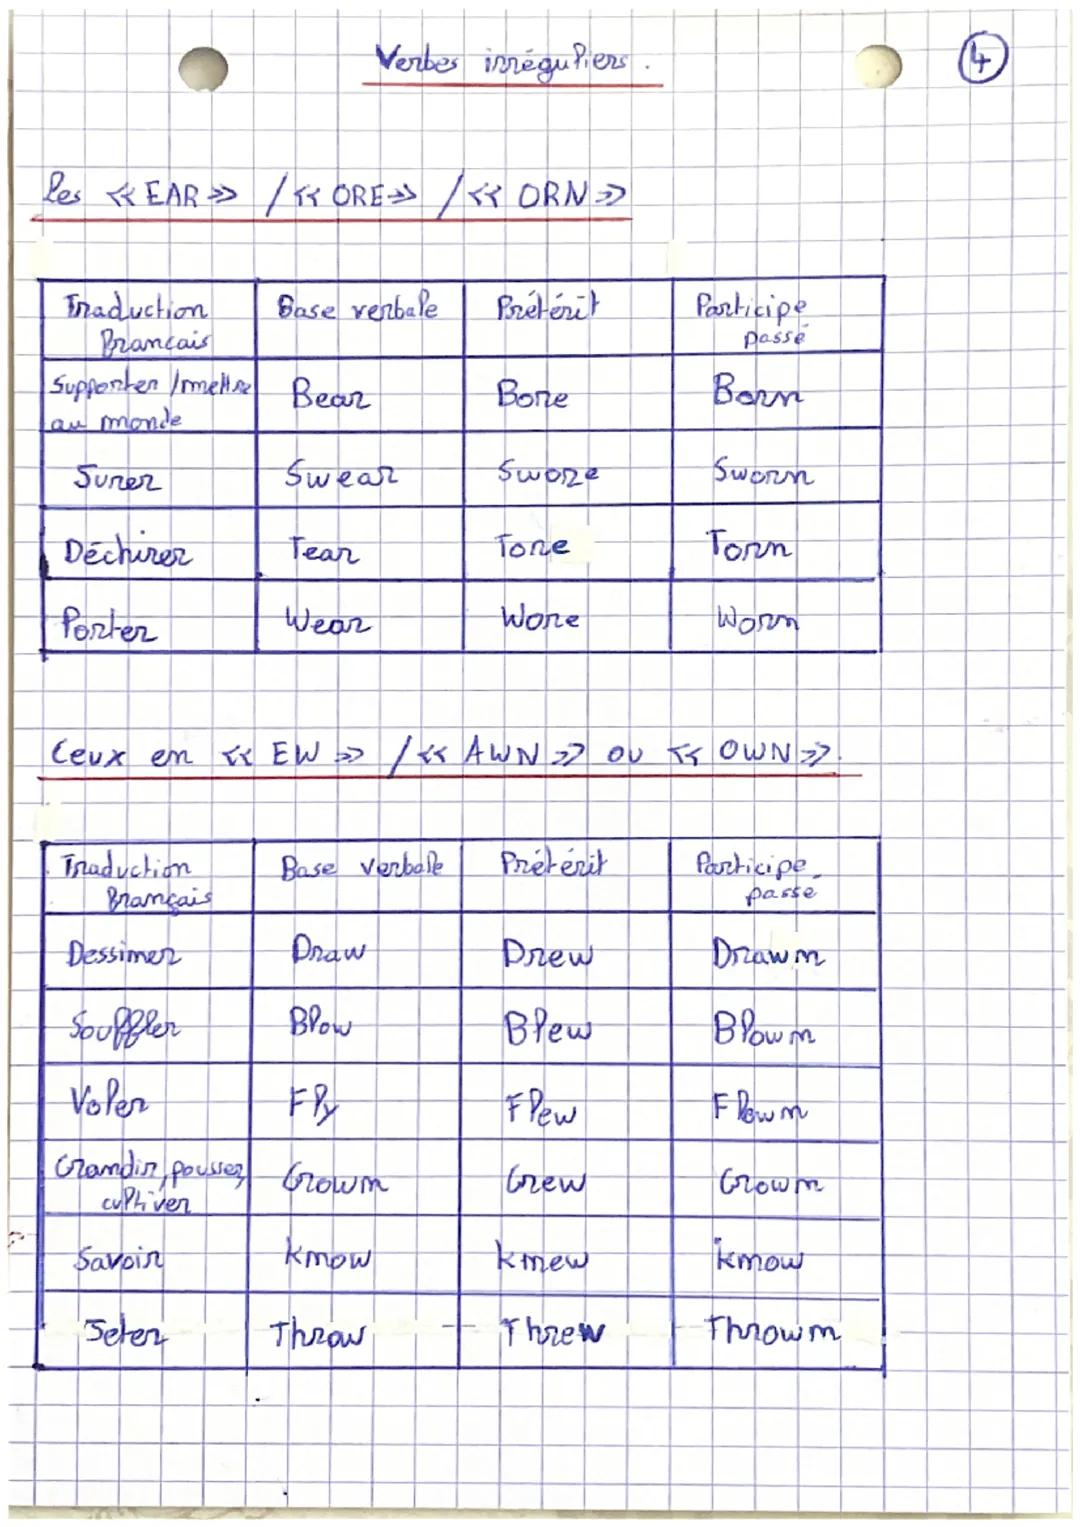 Verbes irréguliers.
4
les << EAR >> / << ORE >> / << ORN >>
Traduction Français Base verbale Prétérit Participe passé
Supporter / mettre au monde Bear Bore Born
Jurer Swear Swore Sworn
Déchirer Tear Tore Torn
Porter Wear Wore Worn
Ceux en << EW >> / << AWN >> ou << OWN >>.
Traduction Français Base verbale Prétérit Participe passe
Dessiner Draw Drew Drawn
Souffler Blow Blew Blown
Voler Fly Flew Flown
Grandir, pousser, cultiver Grown Grew Grown
Savoir Know Knew Know
Jeter Throw Threw Thrown